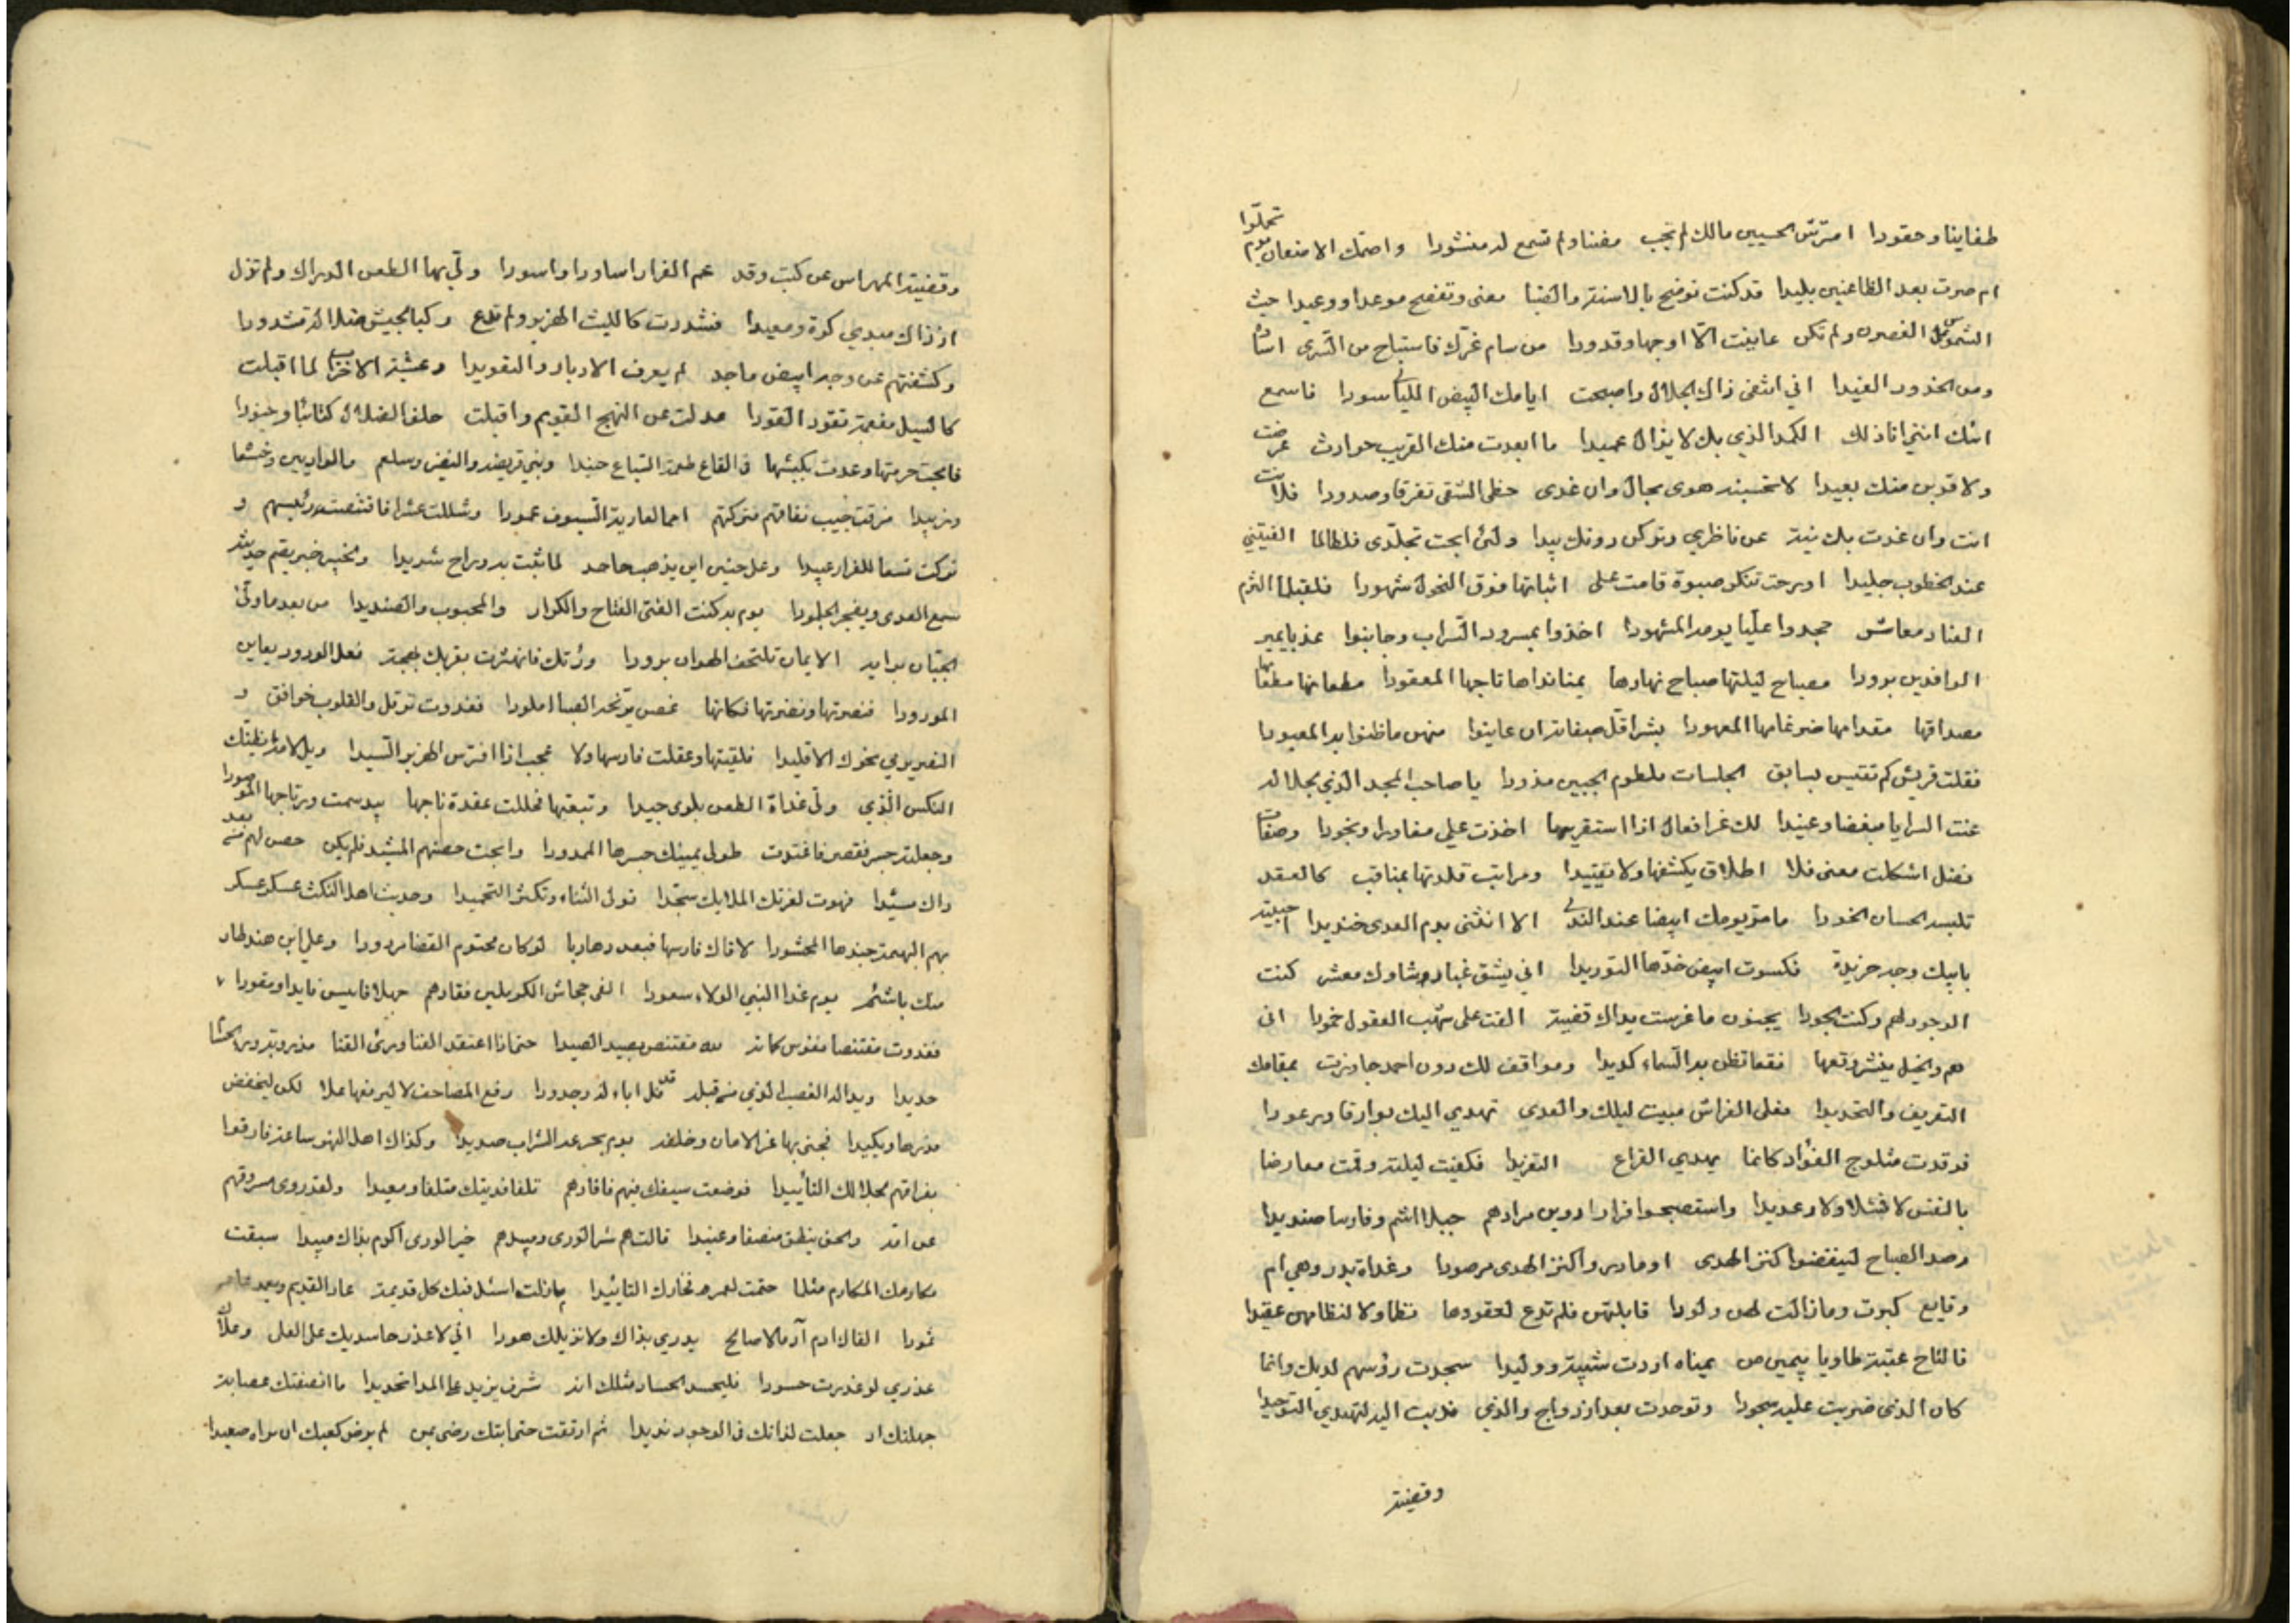 طغاينا وحقودا امترتش الحسيين مالك لم تجب مغننا ولم تسمع لد منشودا واصتمك الامنعان يوم تحملوا
ام صرت بعد الظاعنين بليدا قد كنت توضح بالاسنة والقنا معنى وتفصح موعدا ووعيدا حيث
الشموس الغصون ولم تكن عاينت الا اوجها وقدودا من سام غرك فاستباح من الشرى اساده
ومن الخدور الغيدا اني انتفى ذاك الجلال واصبحت ايامك البيض الليالي سودا فاسمع
ابثك انني انا ذلك الكمد الذي بك لا يزال عميدا ما ابعدت منك القريب حوادث عرضت
ولا قدبن منك بعيدا لا تحسبنه هوى يحال وان غدى حظي الشقي تفرقا وصدودا فلانت
انت وان غدت بك نية عن ناظري وتركن دونك بيدا ولئن ابحت تجلدي فلطالما الفيتني
عند الخطوب جليدا اوبرحت تنكر صبوة قامت على اثباتها فوق النحول شهودا فلقبلما التزم
العناد معاشر جحدوا عليا يومه المشهودا اخذوا بمسرود السراب وجانبوا عذبا يمير
الوافدين برودا مصباح ليلتها صباح نهارها يمنا نداها تاجها المعقودا مطعانها مطعامها
مصداقها مقدامها ضرغامها المعهودا بشرا قل صفاته ان عاينوا منهن ما ظنوا به المعبودا
فقلت قريش كم تقيس بسابق الجلسات ملطوم الجبين مذودا يا صاحب المجد الذي بجلاله
عنت البرايا مبغضا وعنيدا لك غر افعال اذا استقريتها اخذت علي مفاوزا ونجودا وصفات
فضل اشكلت معنى فلا اطلاق يكشفها ولا تقييدا ومراتب قلدتها بمناقب كالعقد
تلبسه الحسان الخودا ما مر يومك ابيضا عند الندى الا انثنى بدم العدى خنديدا احييته
بابيك وجه خريدة فكسوت ابيض خدها التوريدا اني يشق غبار شاوك معشر كنت
الوجود لهم وكنت الجودا يجنون ما غرست يداك قضية القت على شهب العقول خمودا اني
هم والخيل ينشر وقعها نقعا تظن به السماء كديدا ومواقف لك دون احمد جاوزت بمقامك
التعريف والتحديدا فعلى الفراش مبيت ليلك والعدى تهدي اليك بوارقا ورعودا
فرقدت مثلوج الفؤاد كانما يهدي القراع التغريدا فكفيت ليلته وقمت معارضا
بالنفس لا فشلا ولا رعديدا واستصبحوا فراوا دوين مرادهم جبلا اشم وفارسا صنديدا
رصد الصباح لينفضوا كنز الهدى اوما دروا كنز الهدى مرصودا وغداة بدر وهي ام
وقايع كبرت وما زالت لهن ولودا قابلتهن فلم تدع لعقودها نظما ولا لنظامهن عقيدا
فالتاح عتبة طاويا بيمين من يمناه اردت شيبة ووليدا سجدت رؤسهم لديك وانما
كان الذي ضربت عليه سجودا وتوحدت بعد ازدواج والذي ندبت اليه لتهتدي التوحيدا
وقضية
وقضية المهراس عن كثب وقد عم الفرار اساودا واسودا ولي بها الطعن الدراك ولم تزل
اذ ذاك مبدي كرة ومعيدا فشددت كالليث الهزبر ولم تدع ركبا لجيش ضلالة مشدودا
وكشفتهم عن وجه ابيض ماجد لم يعرف الادبار والتعريدا وعشية الاحزاب لما اقبلت
كالسيل مفعمة تقود القودا عدلت عن النهج القويم واقبلت حلف الضلال كتائبا وجنودا
فابحت حرمتها وعدت بكبشها في القاع طعمة السباع حنيدا وبني قريضة والنضير وسلعم والواديين وخثعما
وزبيدا مزقت جيب نفاقهم فتركتهم امما لعارية السيوف غمودا وشللت عشرا فاقتنصت رئيسهم و
تركت تسعا للفرار عبيدا وعلى حنين اين يذهب جاحد لما ثبت به وراح شريدا ولخيبر خبر يقم حديثه
سمع العدى ويفجر الجلمودا يوم به كنت الفتى الفتاح والكرار والمحبوب والصنديدا من بعد ما ولى
الجبان براية الايمان تلتحف الهوان برودا وراتك فابتشرت بقربك بهجة فعل الودود يعاين
المودودا فنصرتها ونضرتها فكانها غصن يرنحه الصبا املودا فغدوت ترقل والقلوب خوافق و
النصر يومي نحوك الاقليدا فلقيتها وعقلت فارسها ولا عجب اذا افترس الهزبر السيدا ويل لامه ايظنك
النكس الذي ولي غداة الطعن يلوى جيدا وتبعتها فحللت عقدة تاجها بيد سمت ورتاجها الموصودا
وجعلته جسرا فقصر فاغتدت طولى يمينك جسرها الممدودا وابحت حصنهم المشيد فلم يكن حصن لهم من بعد
ذاك مشيدا فهوت لعزتك الملايك سجدا تولى الثناء وتكثر التحميدا وحديث اهل النكث عسكر عسكر
بهم البهيمة جندها المحشودا لاقاك فارسها فبعد هاربا لو كان محتوم القضا مردودا وعلى ابن هند طار
منك باشئم يوم غدا النبي الولاء سعودا الفى جحاش الكرملين فقادهم جهلا فابيس قايدا ومقودا
فغدوت مقتنصا نفوس كماته لله مقتنص يصيد الصيدا حتى اذا اعتقد الفنا ورئ القنا مذروبة وبرى الحشا
حديدا وبدا له الغضب الذي من قبله قد فل اباء له وجدودا رفع المصاحف لا ليرفعها علا لكن ليخفض
قدرها ويكيدا فجنى بها ثمر الامان وخلفه يوم يجرعه الشراب صديدا وكذاك اهل النهر ساعة فارقوا
بفراقهم لجلالك التأييدا فوضعت سيفك فيهم فافادهم تلفا فديتك متلفا ومعيدا ولقد روى مسروقهم
عن امه والحق ينطق منصفا وعنيدا قالت هم شر الورى ومبيدهم خير الورى اكرم بذاك مبيدا سبقت
مكارمك المكارم مثلما ختمت لعمر فخارك التابيدا ما زلت اسئل فيك كل قديمة عاد القديم وبعد عاد
ثمودا الفاك ادم آدم الا صالح يدري بذاك ولا نزيلك هودا اني لا عذر حاسديك على العلى وعلاك
عذري لو عذرت حسودا فليحسد الحساد مثلك انه شرف يزيد على المدا تحديدا ما انصفتك عصابة
جهلتك اذ جعلت لذاتك في الوجود نديدا ثم ارتقت حتى ابتك رضى بمن لم يرض كعبك ان يراه صعيدا